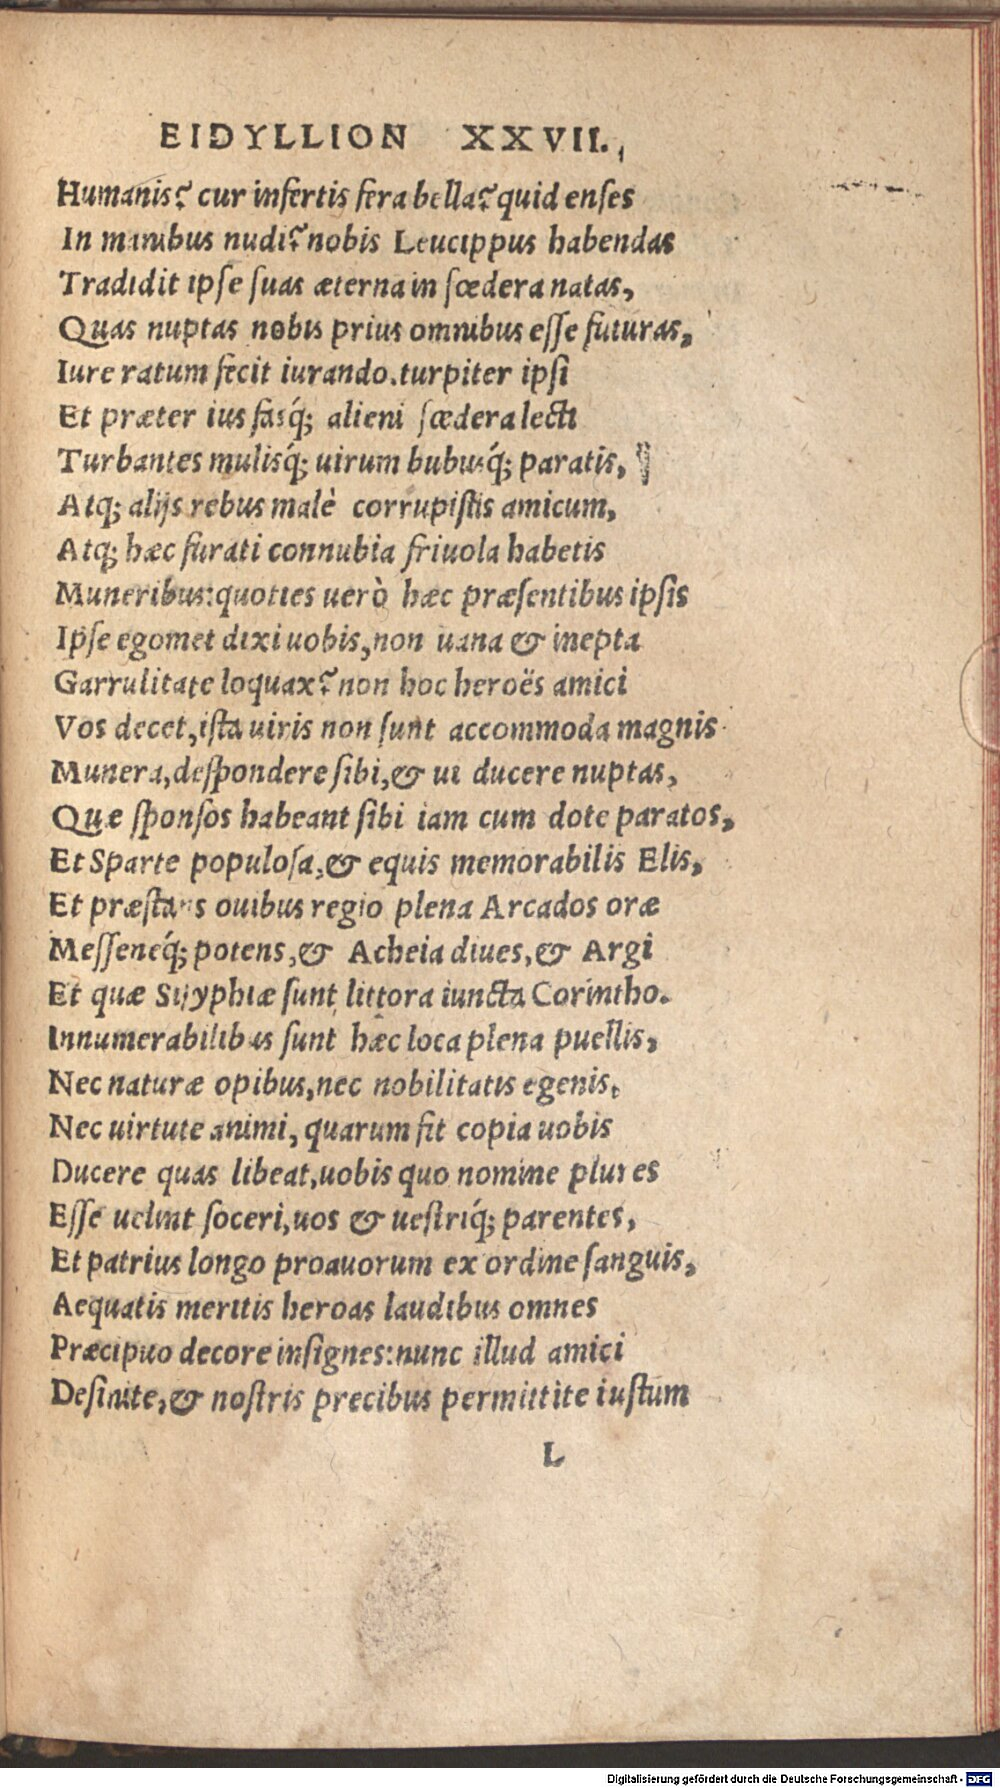 EIDYLLION XXVII.
Humanis? cur infertis fera bella? quid enses
In manibus nudi? nobis Leucippus habendas
Tradidit ipse suas æterna in fœdera natas,
Quas nuptas nobis prius omnibus esse futuras,
Iure ratum fecit iurando. turpiter ipsi
Et præter ius fasq́; alieni fœdera lecti
Turbantes mulisq́; uirum bubusq́; paratis,
Atq; alijs rebus malè corrupistis amicum,
Atq; hæc furati connubia friuola habetis
Muneribus: quoties uerò hæc præsentibus ipsis
Ipse egomet dixi uobis, non uana & inepta
Garrulitate loquax? non hoc heroës amici
Vos decet, ista uiris non sunt accommoda magnis
Munera, despondere sibi, & ui ducere nuptas,
Quæ sponsos habeant sibi iam cum dote paratos,
Et Sparte populosa, & equis memorabilis Elis,
Et præstans ouibus regio plena Arcados oræ
Messeneq́; potens, & Acheia diues, & Argi
Et quæ Sisyphiæ sunt littora iuncta Corintho.
Innumerabilibus sunt hæc loca plena puellis,
Nec naturæ opibus, nec nobilitatis egenis,
Nec uirtute animi, quarum fit copia uobis
Ducere quas libeat, uobis quo nomine plures
Esse uelint soceri, uos & uestriq́; parentes,
Et patrius longo proauorum ex ordine sanguis,
Aequatis meritis heroas laudibus omnes
Præcipuo decore insignes: nunc illud amici
Desinite, & nostris precibus permittite iustum
L
Digitalisierung gefördert durch die Deutsche Forschungsgemeinschaft - DFG